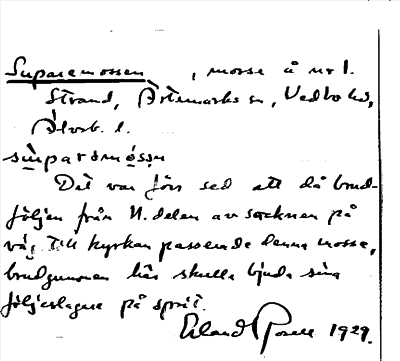 Suparemossen, mosse å nr 1.
Strand, Årtemarks sn, Vedbo hd,
Älvsb. l.
Det var förr sed att då brud-
följen från N. delen av socknen på
väg till kyrkan passerade denna mosse,
brudgummen här skulle bjuda sina
följeslagare på sprit.
Erland Rosell 1929.